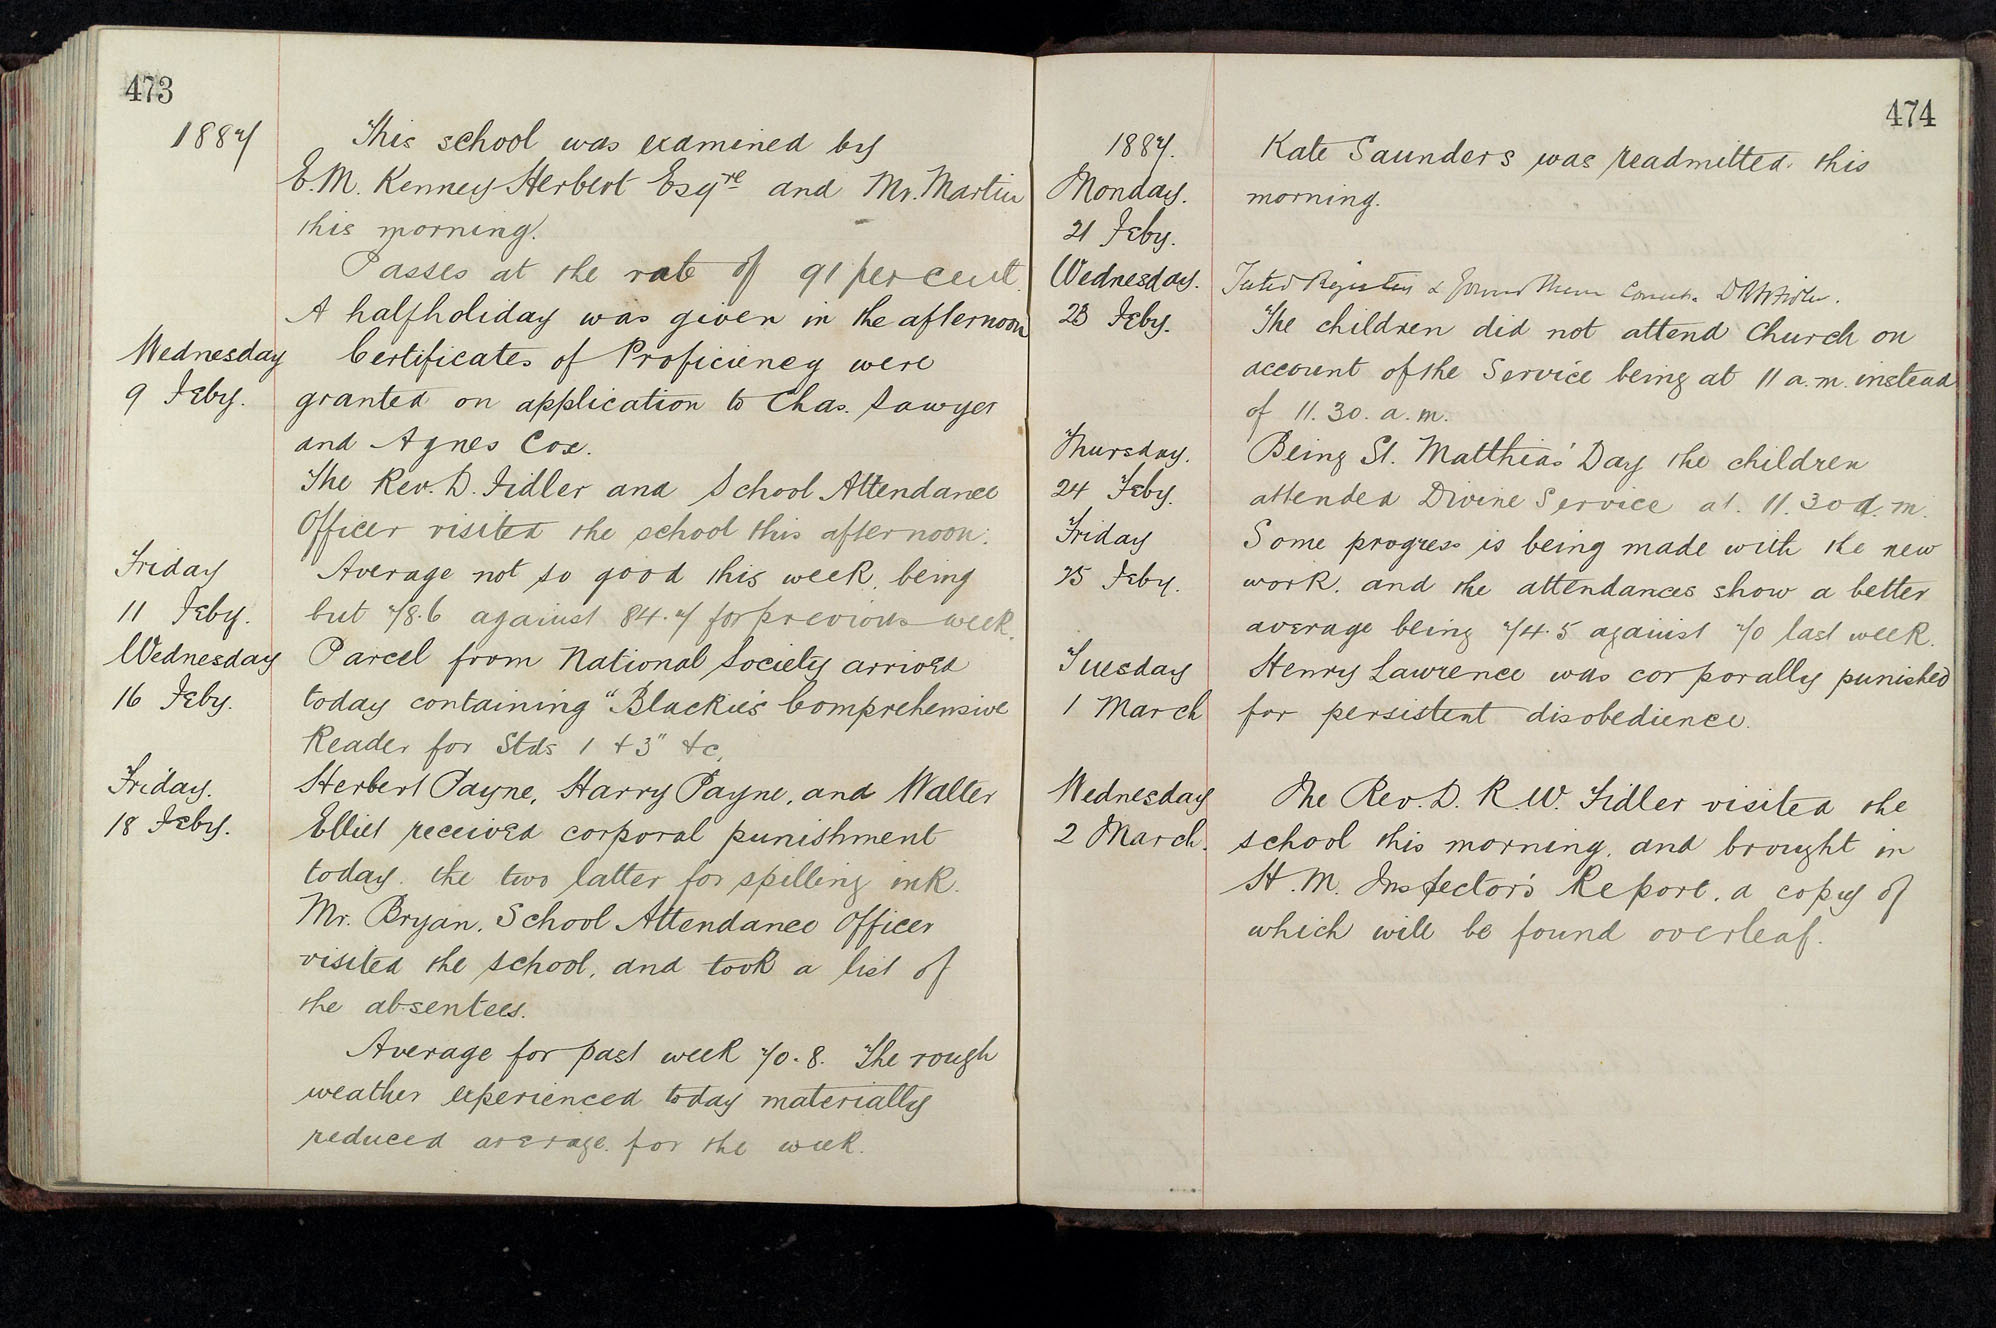 473
1887
This school was examined by
E.M. Kenney Herbert Esqre and Mr. Martin
this morning.
Passes at the rate of 91 per cent.
A halfholiday was given in the afternoon
Wednesday
9 Feby.
Certificates of Proficiency were
granted on application to Chas. Sawyer
and Agnes Cox.
The Rev. D. Fidler and School Attendance
Officer visited the school this afternoon.
Friday
11 Feby.
Average not so good this week, being
but 78.6 against 84.7 for previous week.
Wednesday
16 Feby.
Parcel from National Society arrived
today containing "Blackie's Comprehensive
Reader for Stds 1 & 3" &c.
Friday.
18 Feby.
Herbert Payne, Harry Payne, and Walter
Elliet received corporal punishment
today. the two latter for spilling ink.
Mr. Bryan, School Attendance Officer
visited the school, and took a list of
the absentees.
Average for past week 70.8. The rough
weather experienced today materially
reduced average for the week.
474
1887.
Monday.
21 Feby.
Kate Saunders was readmitted this
morning.
Wednesday.
23 Feby.
Tested Registers & found them correct. D R W Fidler.
The children did not attend Church on
account of the Service being at 11 a.m. instead
of 11.30. a.m.
Thursday.
24 Feby.
Being St. Matthias' Day the children
attended Divine Service at. 11.30 a.m.
Friday
25 Feby.
Some progress is being made with the new
work. and the attendances show a better
average being 74.5 against 70 last week.
Tuesday
1 March
Henry Lawrence was corporally punished
for persistent disobedience.
Wednesday
2 March.
The Rev. D. R. W. Fidler visited the
school this morning, and brought in
H.M. Inspector's Report, a copy of
which will be found overleaf.